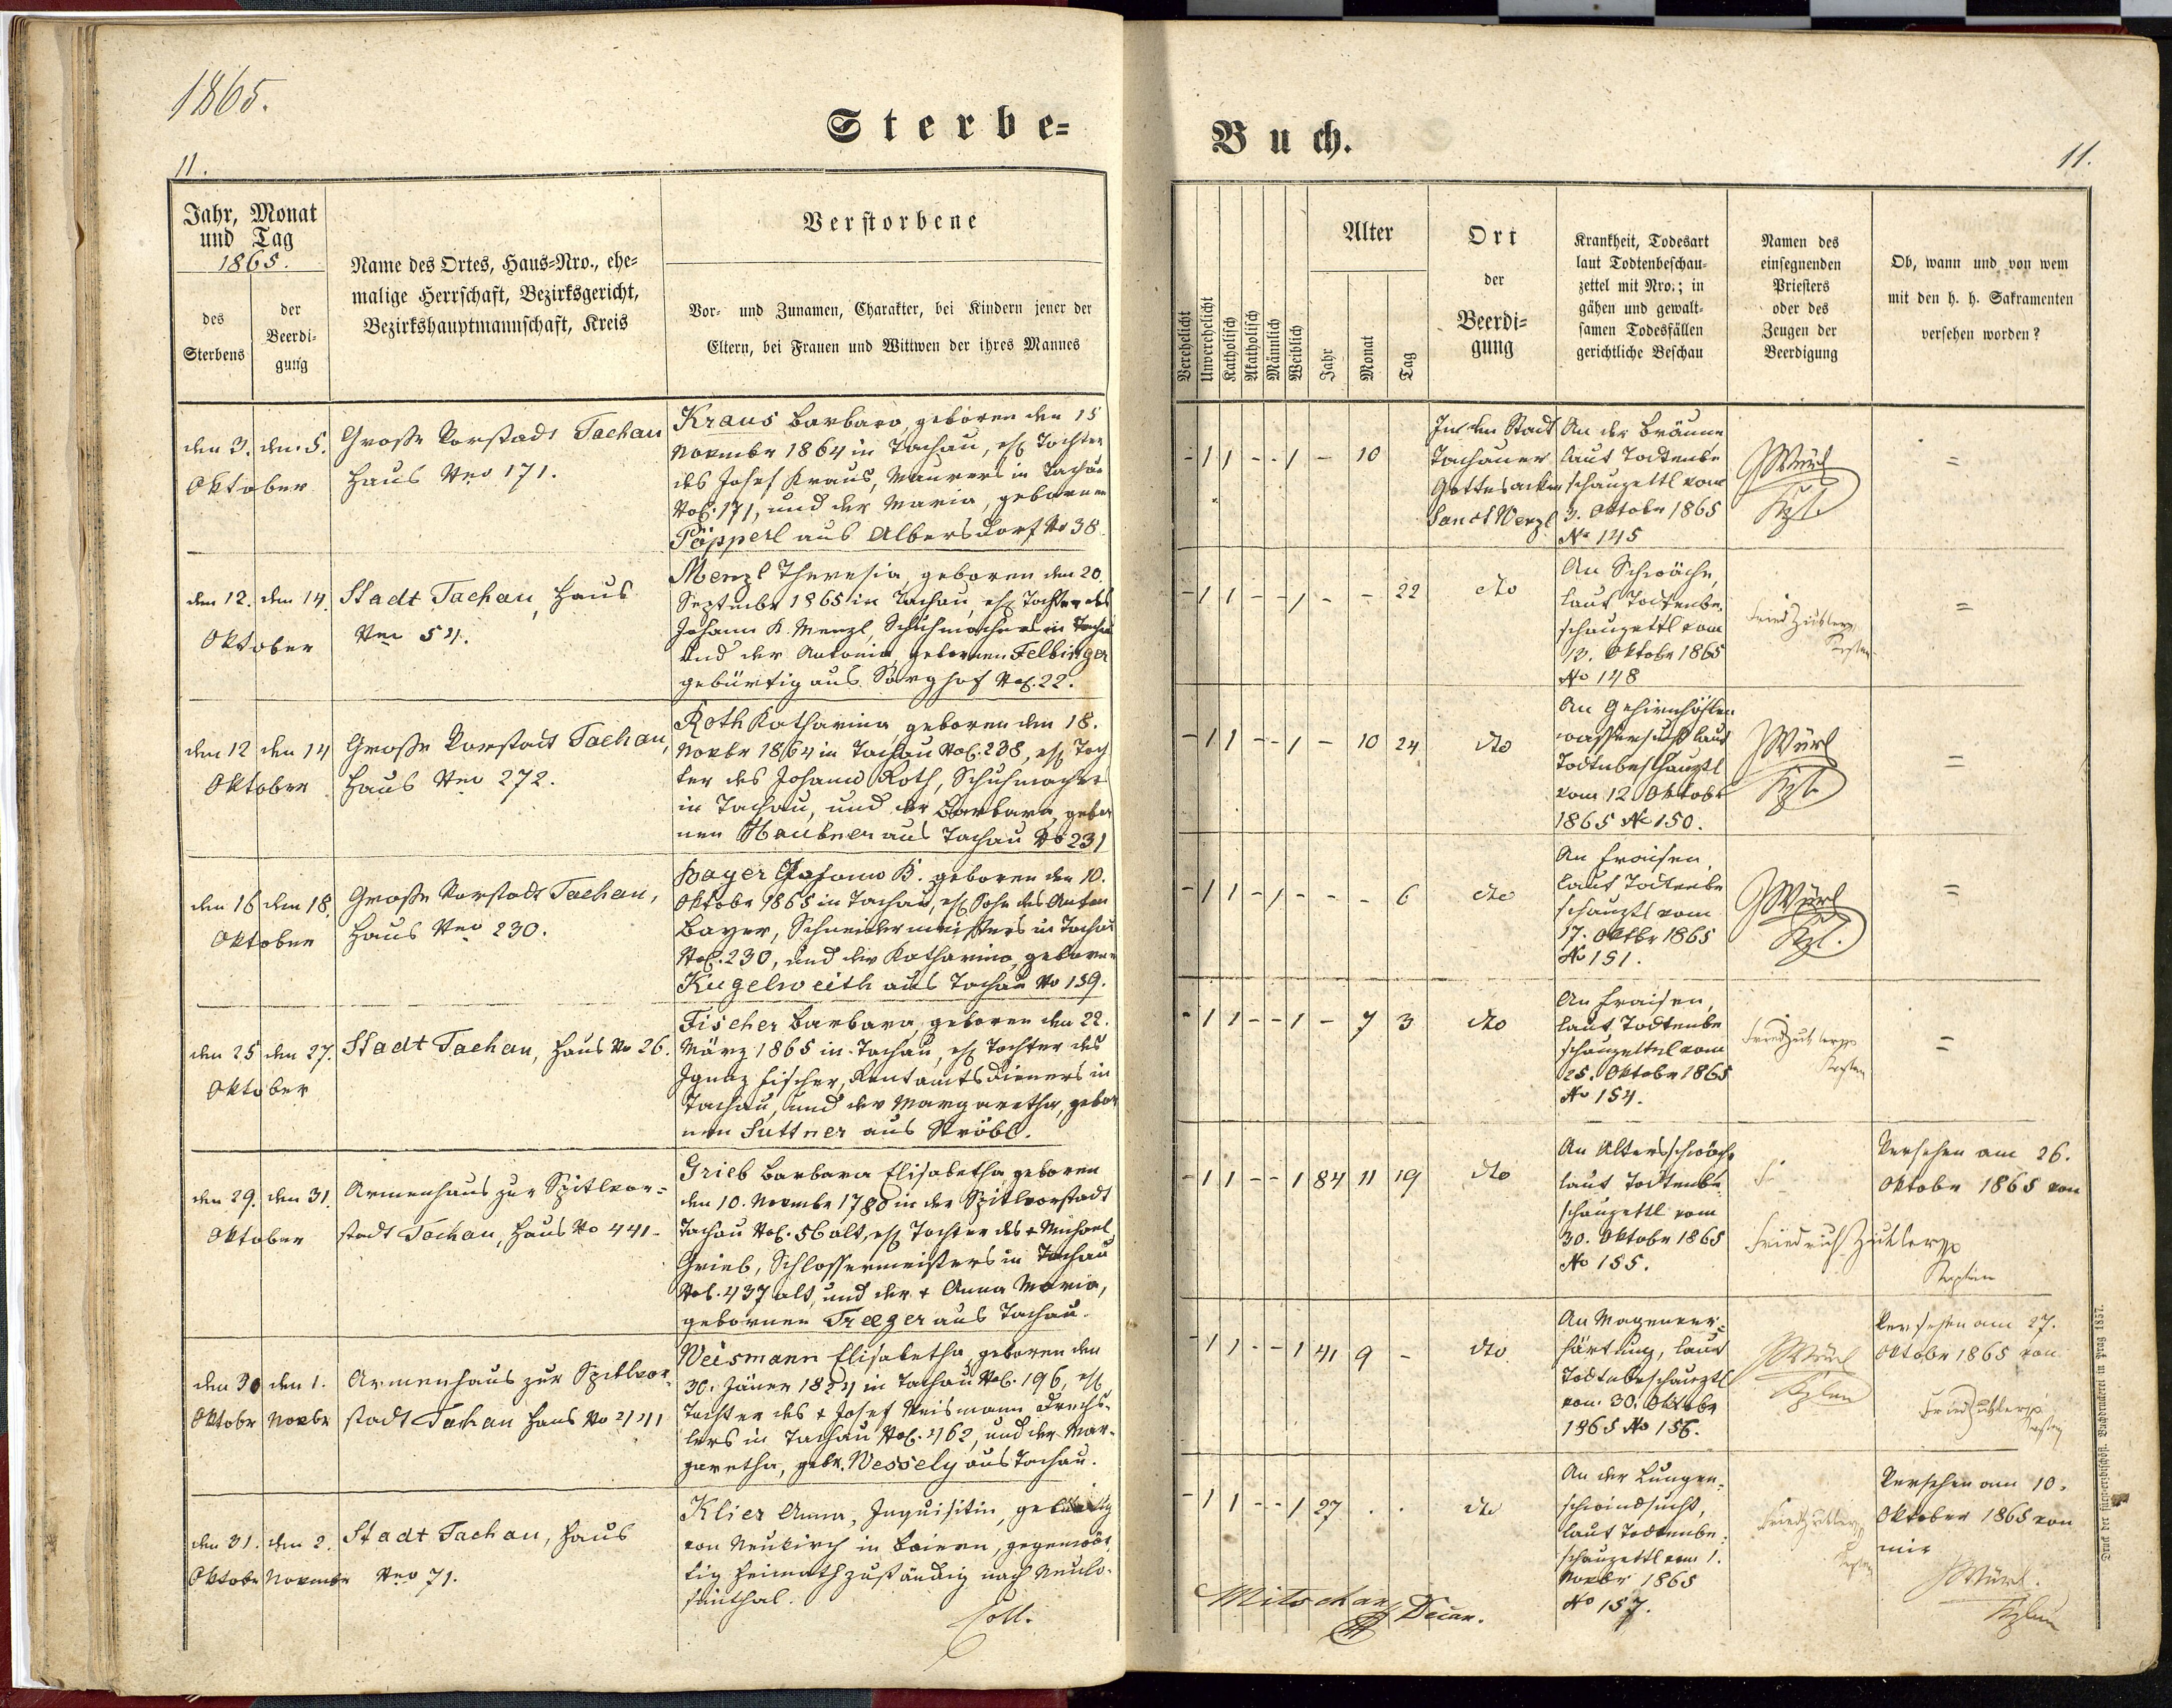 1865.
Sterbe=
Buch.
11.
11.
Jahr, Monat
und Tag
1865.
des
Sterbens
der
Beerdi-
gung
Name des Ortes, Haus=Nro., ehe=
malige Herrschaft, Bezirksgericht,
Bezirkshauptmannschaft, Kreis
Verstorbene
Vor- und Zunamen, Charakter, bei Kindern jener der
Eltern, bei Frauen und Wittwen der ihres Mannes
Verehelicht
Unverehelicht
Katholisch
Akatholisch
Männlich
Weiblich
Alter
Jahr
Monat
Tag
Ort
der
Beerdi=
gung
Krankheit, Todesart
laut Todtenbeschau-
zettel mit Nro.; in
gähen und gewalt-
samen Todesfällen
gerichtliche Beschau
Namen des
einsegnenden
Priesters
oder des
Zeugen der
Beerdigung
Ob, wann und von wem
mit den h. h. Sakramenten
versehen worden?
den 3. den 5.
Oktober
Große Vorstadt Tachau
Haus Nro 171.
Kraus Barbara, geboren den 15
Novembr 1864 in Tachau, ehl Tochter
des Josef Kraus, Maurers in Tachau
NoC. 171, und der Maria, gebornen
Pöpperl aus Albersdorf No 38
- 1 1 - - 1 - 10
In der Stadt
Tachauer
Gottesacker
Sanct Wenzl
An der Bräune
laut Todtenbe
schauzettl vom
3. Oktobr 1865
No 145
JWürl
Kpl.
=
den 12. den 14.
Oktober
Stadt Tachau, Haus
Nro 54.
Menzl Theresia, geboren den 20.
Septembr 1865 in Tachau, ehl Tochter des
Johann K. Menzl, Schuhmachers in Tachau
und der Antonia gebornen Felbinger
gebürtig aus Sorghof NoC. 22.
- 1 1 - - 1 - - 22
dto
An Schwäche,
laut Todtenbe.
schauzettl vom
12. Oktobr 1865
No 148
=
den 12 den 14
Oktober
Große Vorstadt Tachau,
Haus Nro 272.
Roth Katharina, geboren den 18.
Novbr 1864 in Tachau NoC. 238, ehl Toch
ter des Johann Roth, Schuhmachers
in Tachau, und der Barbara, gebor
nen Haubner aus Tachau No 231
- 1 1 - - 1 - 10 24
dto
An Gehirnhöhlen
wassersucht laut
Todtenbeschauzttl
vom 12. Oktobr
1865 No 150.
JWürl
Kpl.
=
den 16 den 18.
Oktober
Große Vorstadt Tachau,
Haus Nro 230.
Bayer Johann B. geboren den 10.
Oktobr 1865 in Tachau, ehl Sohn des Anton
Bayer, Schneidermeisters in Tachau
NoC. 230, und der Katharina, gebornen
Kugelweith aus Tachau No 159.
- 1 1 - 1 - - - 6
dto
An Fraisen,
laut Todtenbe
schauzttl vom
17. Oktbr 1865
No 151.
JWürl
Kpl.
=
den 25 den 27.
Oktober
Stadt Tachau, Haus No 26.
Fischer Barbara, geboren den 22.
März 1865 in Tachau, ehl Tochter des
Ignaz Fischer, Rentamtsdieners in
Tachau, und der Margaretha, gebor
nen Suttner aus Ströbl.
- 1 1 - - 1 - 7 3
dto
An Fraisen,
laut Todtenbe
schauzettel vom
25. Oktobr 1865
No 154.
=
den 29. den 31.
Oktober
Armenhaus zur Spitlvor=
stadt Tachau, Haus No 441.
Grieb Barbara Elisabetha geboren
den 10. Novembr 1780 in der Spitlvorstadt
Tachau NoC. 56 alt, ehl Tochter des + Michael
Grieb, Schlossermeisters in Tachau
NoC. 437 alt, und der + Anna Maria,
gebornen Treger aus Tachau.
- 1 1 - - 1 84 11 19
dto
An Altersschwäche
laut Todtenbe
schauzettl vom
30. Oktobr 1865
No 155.
Versehen am 26.
Oktobr 1865 von
Friedrich
den 30 den 1.
Oktobr Novbr
Armenhaus zur Spitlvor
stadt Tachau Haus No 441
Weismann Elisabetha, geboren den
30. Jäner 1824 in Tachau NoC. 196, ehl
Tochter des + Josef Weismann Drechs-
lers in Tachau NoC. 462, und der Mar-
garetha, gebr. Wessely aus Tachau.
- 1 1 - - 1 41 9 -
dto
An Magenver=
härtung, laut
Todtenbeschauzttl
vom 30. Oktobr
1865 No 156.
JWürl
Kplan
Versehen am 27.
Oktobr 1865 von
den 31. den 2.
Oktobr Novembr
Stadt Tachau, Haus
Nro 71.
Klier Anna, Inquisitin, gebürtig
von Neukirch in Baiern, gegenwär
tig heimathzuständig nach Neulo-
simthal.
Coll.
- 1 1 - - 1 27 . .
dto
An der Lungen=
schwindsucht,
laut Todtenbe=
schauzettl vom 1.
Novbr 1865
No 157.
Versehen am 10.
Oktober 1865 von
mir
JWürl.
Kplan
Mitschan Decan.
Druck der fürst-erzbischöfl. Buchdruckerei in Prag 1857.